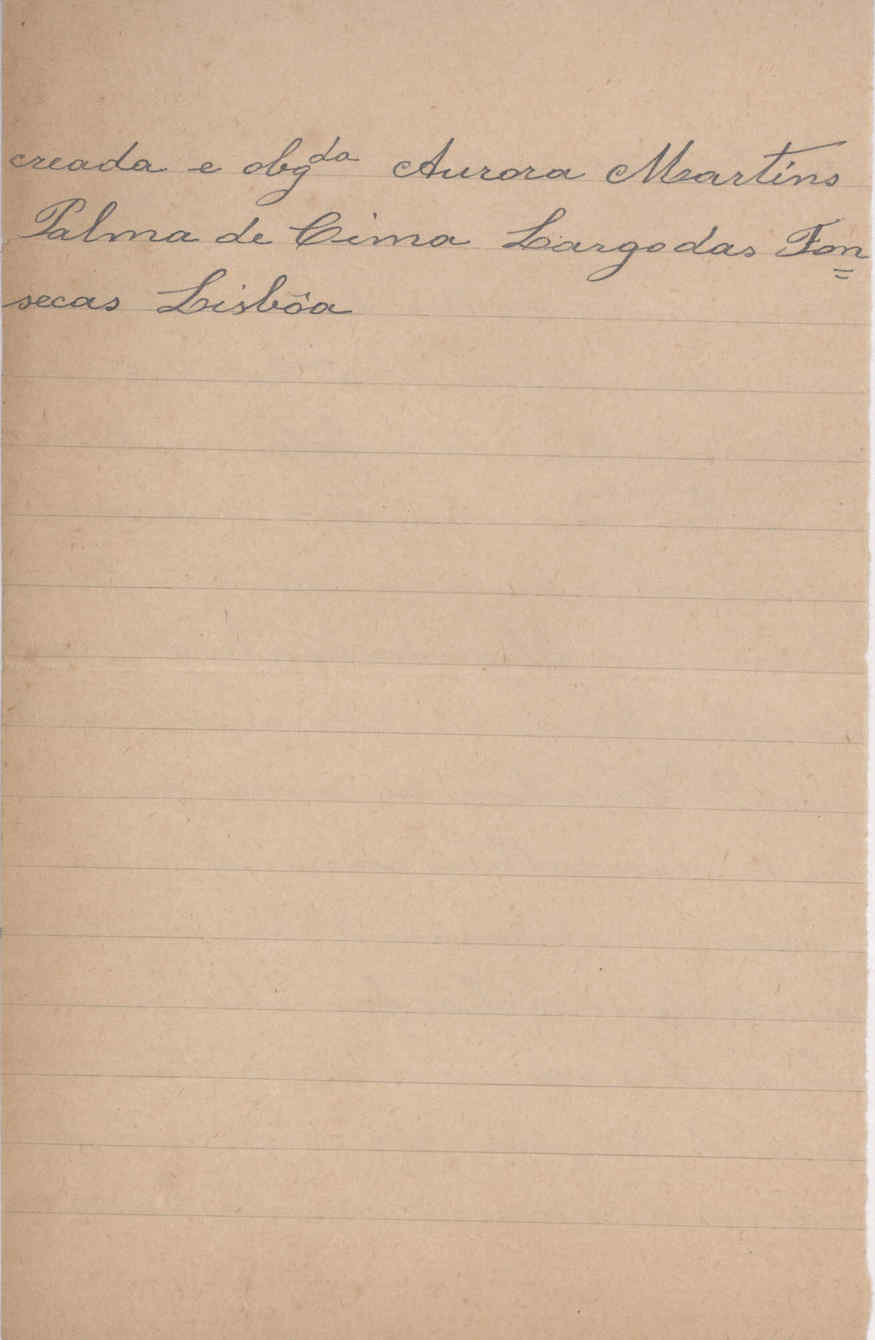 creada e obgda Aurora Martins
Palma de Cima Largo das Fon=
secas Lisbôa